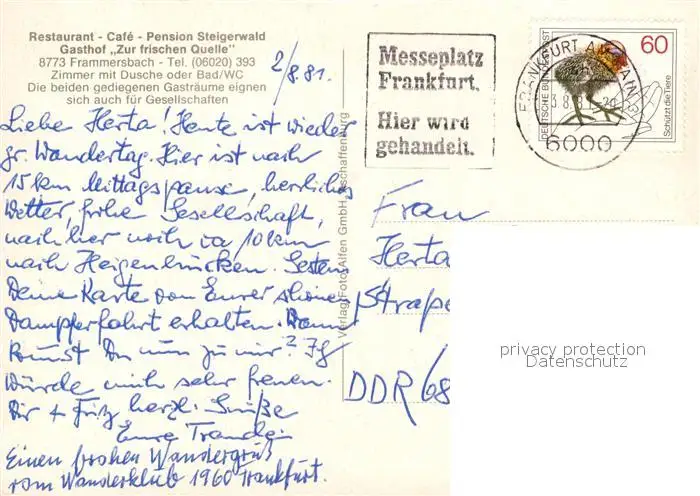 Restaurant - Café - Pension Steigerwald
Gasthof „Zur frischen Quelle"
8773 Frammersbach - Tel. (06020) 393
Zimmer mit Dusche oder Bad/WC
Die beiden gediegenen Gasträume eignen
sich auch für Gesellschaften
2/8.81.
Liebe Herta! Heute ist wieder
gr. Wandertag. Hier ist nach
15 km Mittagspause, herrliches
Wetter, frohe Gesellschaft,
nachher noch ca 10 km
nach Heigenbrücken. Gestern
Deine Karte von Eurer schönen
Dampferfahrt erhalten. Wann
kommst Du nun zu mir? Ich
würde mich sehr freuen.
Dir + Fritz herzl. Grüße
Eure Traudel
Einen frohen Wandergruß
vom Wanderklub 1960 Frankfurt.
Verlag Foto Alfen GmbH, Aschaffenburg
Messeplatz
Frankfurt.
Hier wird
gehandelt.
FRANKFURT AM MAIN 2
3.8.81
6000
DEUTSCHE BUNDESPOST
60
Schützt die Tiere
Frau
Herta
Straße
DDR 68
privacy protection
Datenschutz